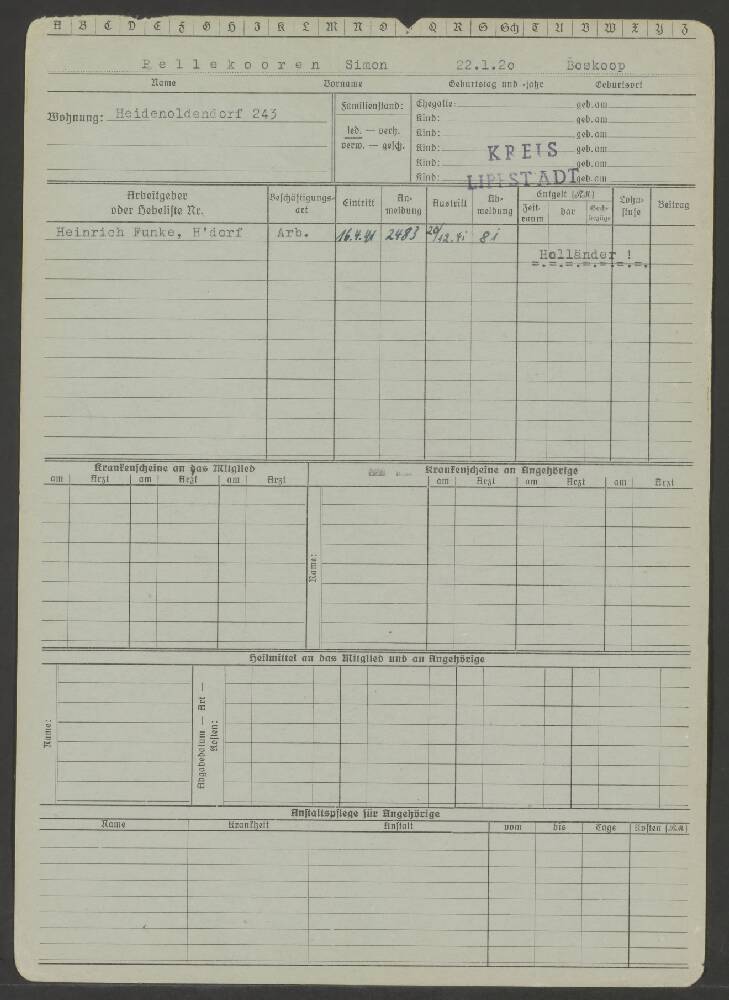 A B C D E F G H I K L M N O Q R S Sch T U V W X Y Z
Pellekooren Simon 22.1.20 Boskoop
Name Vorname Geburtstag und -jahr Geburtsort
Wohnung: Heidenoldendorf 243
Familienstand:
led. — verh.
verw. — gesch.
Ehegatte: geb. am
Kind: geb. am
Kind: geb. am
Kind: geb. am
Kind: geb. am
Kind: geb. am
KREIS
LIPPSTADT
Arbeitgeber oder Hebeliste Nr. Beschäftigungsart Eintritt Anmeldung Austritt Abmeldung Entgelt (RM) Zeitraum bar Sachbezüge Lohnstufe Beitrag
Heinrich Funke, H'dorf Arb. 16.4.41 2483 20/12.41 81
Holländer !
=.=.=.=.=.=.=.
Krankenscheine an das Mitglied Krankenscheine an Angehörige
am Arzt am Arzt am Arzt am Arzt am Arzt am Arzt
Name:
Heilmittel an das Mitglied und an Angehörige
Name:
Abgabedatum — Art — Kosten:
Anstaltspflege für Angehörige
Name Krankheit Anstalt vom bis Tage Kosten (RM)